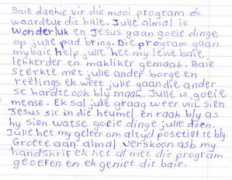 Baie dankie vir die mooi program en
waardtuf die hulle. Julle almal is
wonderlik en Jesus gaan goeie dinge
op julle pad bring. Die program gaan
my baie help, julle het my lewe baie
lekkerder en makliker gemaak. Baie
sterkte met julle ander borge en
reelings ek weet julle gaan die ander
se harde ook bly maak. Julle is goeie
mense. Ek sal julle graag weer wil sien
Jesus sit in die hemel en raak bly as
hy sien watse goeie dinge julle doen.
Julle het my geleer om altyd positief te bly.
Groete aan almal verskoon asb my
handskrif ek het al met die program
geoefen en ek geniet dit baie.